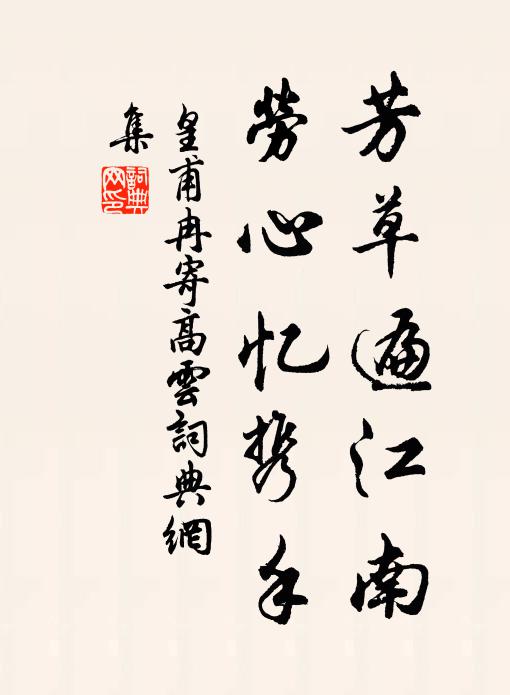 芳草遍江南
勞心忆携手
皇甫冉寄高雲詞典網
集
詞典网印